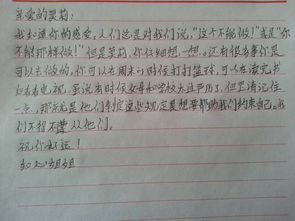 亲爱的吴莉:
我知道你的感受,人们总是对我们说,“这个不能做!”或是“你
不能那样做!”但是吴莉,你仔细想一想。还有很多事你是
可以去做的,你可以在周末的时候打打篮球,可以在读完书
时去看电视,虽说有时候父母和学校太过严厉了,但是请记住
一点,那就是他们制定这些规定是想要帮助我们约束自己。我
们不得不遵从他们。
祝你好运!
知心姐姐